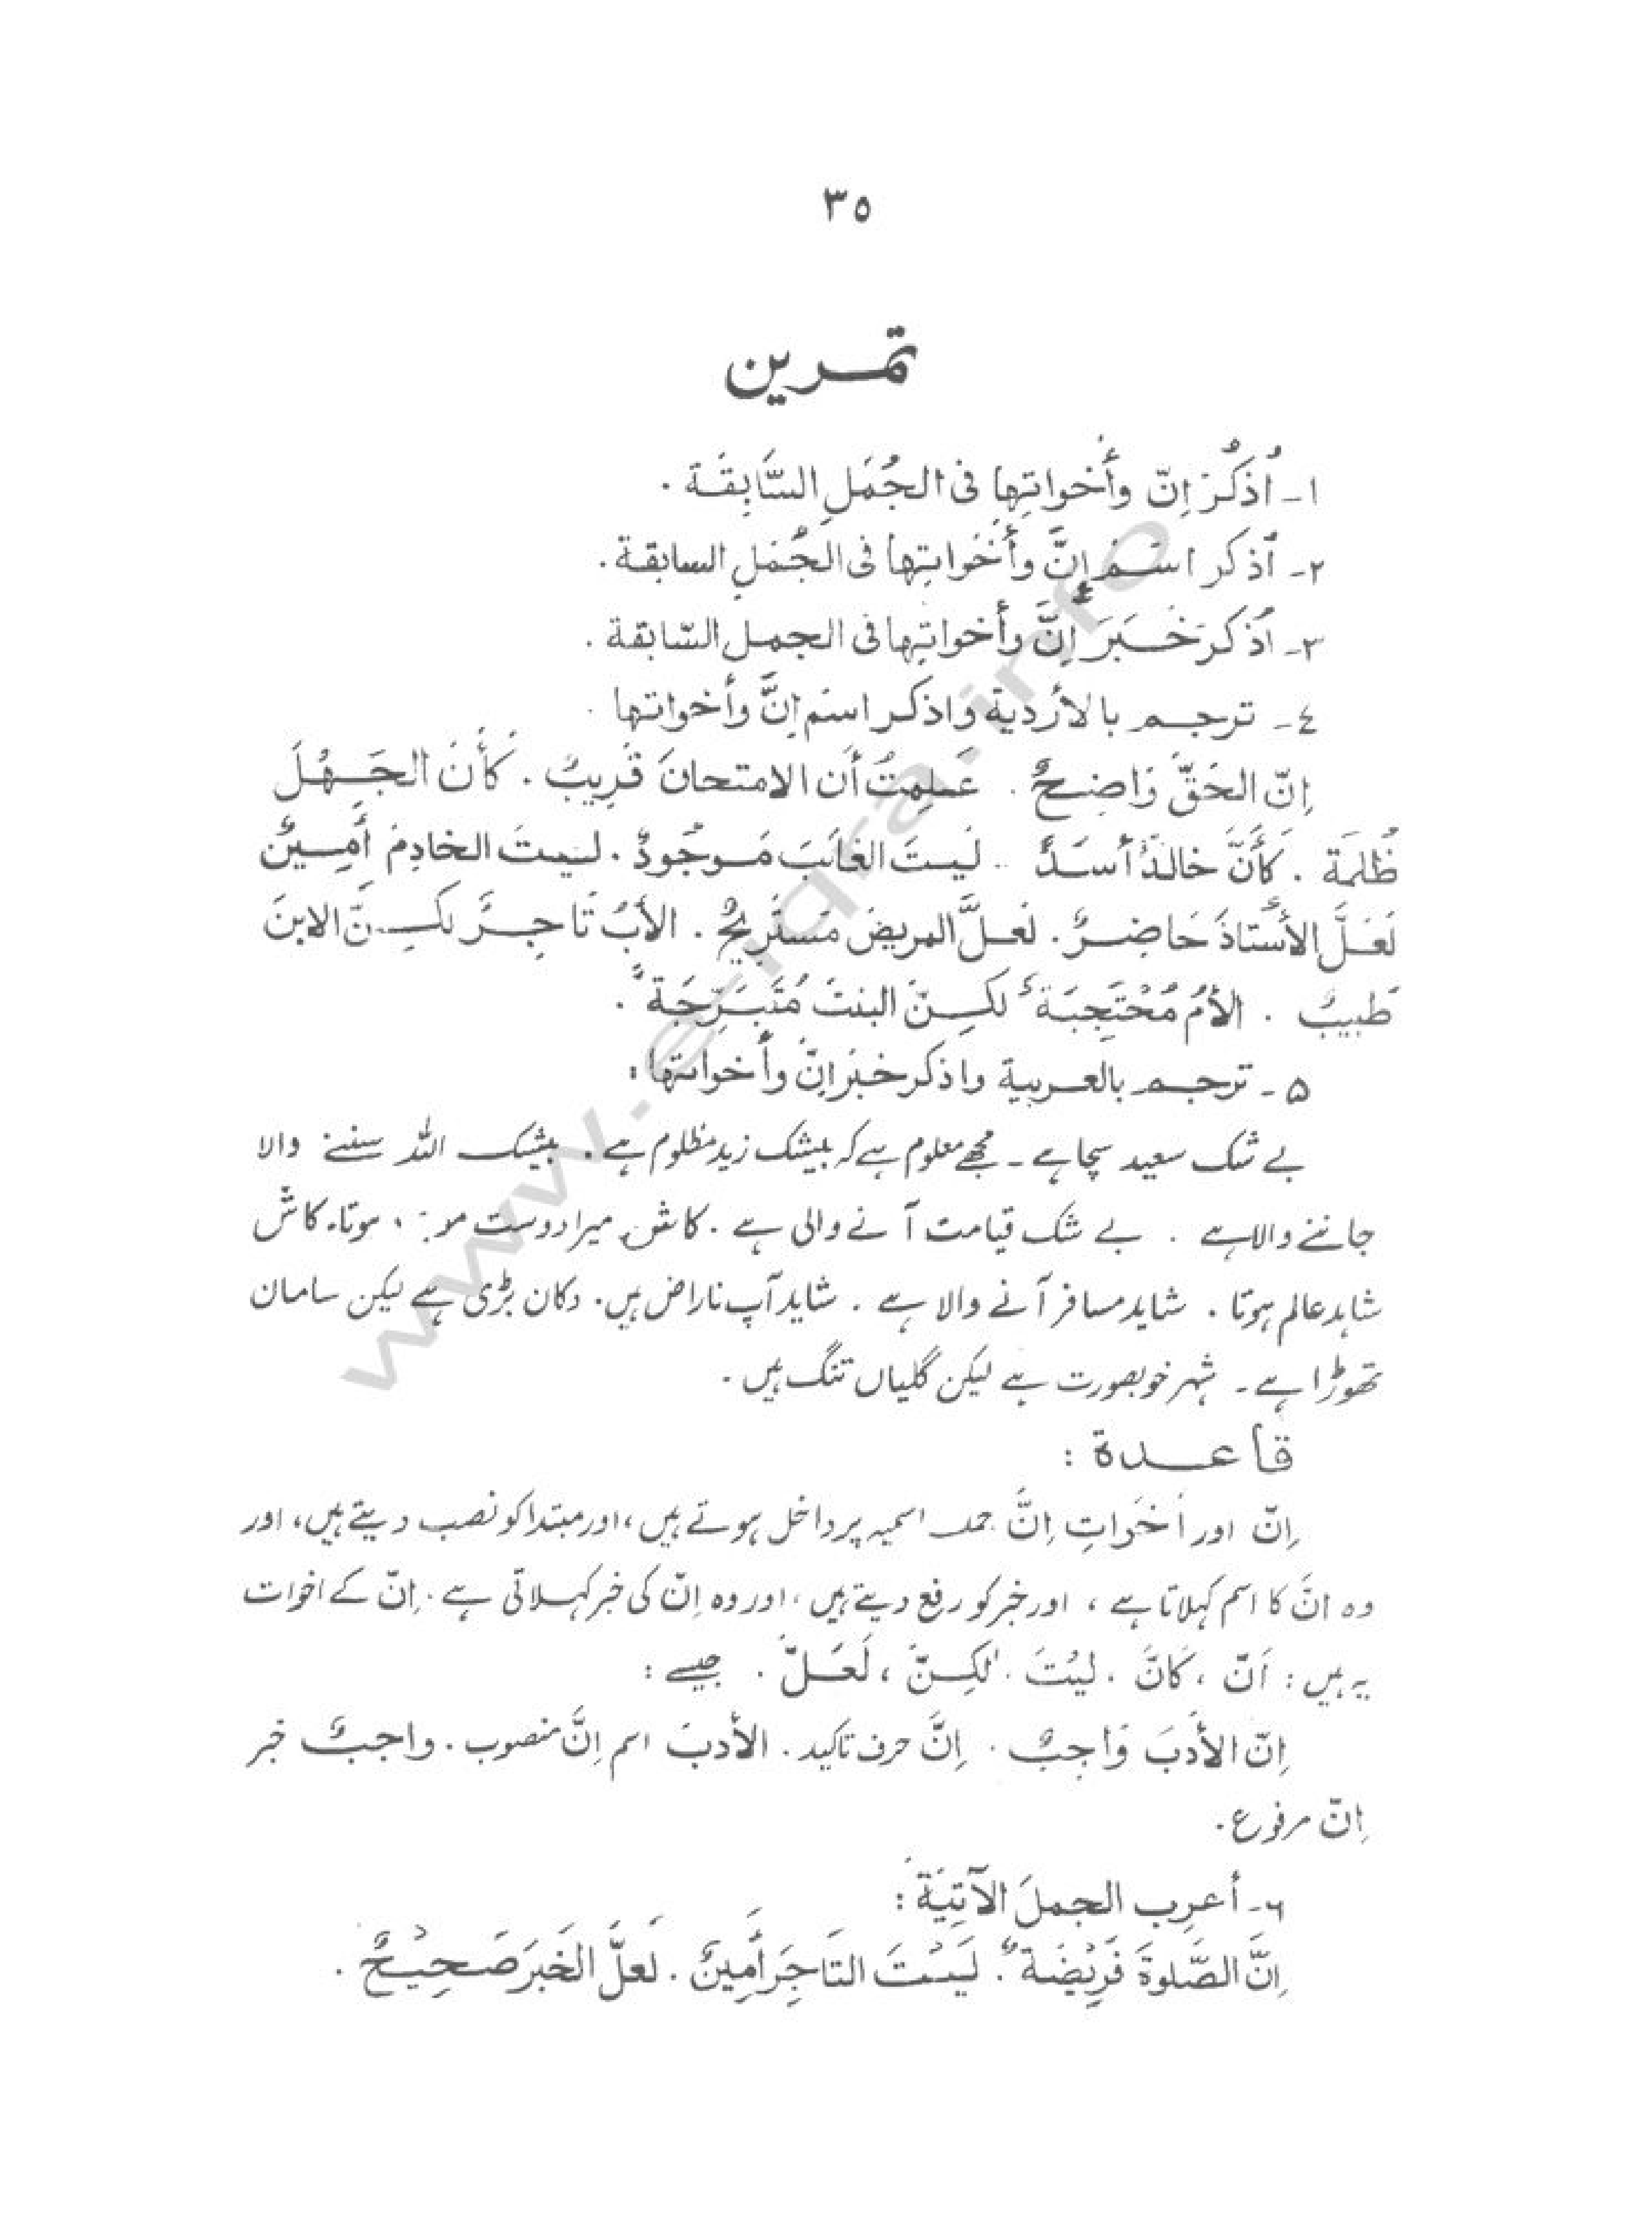 ٣٥
تمرين
١ـ اُذكُرْ إِنّ وأَخواتِها فى الجُمَلِ السَّابِقَة .
٢ـ اُذكر اسْمَ إِنَّ وأَخَواتِها فى الجُمَلِ السابقة .
٣ـ اُذكر خَبَرَ إِنَّ وأَخواتِها فى الجمل السّابقة .
٤ـ ترجم بالأردية واذكر اسْم إِنَّ وأخواتها .
إِنّ الحَقَّ وَاضِحٌ . عَلِمتُ أَن الامتحانَ قَرِيبٌ . كَأَنَّ الجَهْلَ
ظُلمَة . كَأَنَّ خالدًا أسَدٌ . لَيتَ الغائبَ مَوجُودٌ . ليتَ الخادِمَ أَمِينٌ
لَعَلَّ الأُستاذَ حَاضِرٌ . لَعلَّ المريضَ مَستَرِيحٌ . الأَبُ تَاجِرٌ لكنّ الابنَ
طَبيبٌ . الأُمُ مُحْتَجِبَةٌ لكنّ البنتَ مُتَبَرِّجَةٌ .
۵ـ ترجم بالعربية واذكر خبرَ إِنَّ وأَخواتها :
بے شک سعید سچا ہے ۔ مجھے معلوم ہے کہ بیشک زید مظلوم ہے . بیشک اللہ سننے والا
جاننے والا ہے . بے شک قیامت آنے والی ہے . کاش میرا دوست ہوتا، کاش
شاہد عالم ہوتا . شاید مسافر آنے والا ہے . شاید آپ ناراض ہیں. دکان بڑی ہے لیکن سامان
تھوڑا ہے ۔ شہر خوبصورت ہے لیکن گلیاں تنگ ہیں .
قاعدة :
إِنّ اور أَخَواتِ إِنَّ جملہ اسمیہ پر داخل ہوتے ہیں، اور مبتدا کو نصب دیتے ہیں، اور
وہ انَّ کا اسم کہلاتا ہے ، اور خبر کو رفع دیتے ہیں، اور وہ اِنّ کی خبر کہلاتی ہے . اِنّ کے اخوات
یہ ہیں : اَنّ ، كَانَّ . ليْتَ . لٰكِنّ ، لَعَلّ . جیسے :
إِنّ الأَدَبَ وَاجبٌ . إِنَّ حرف تاکید . الأَدبَ اسم إِنَّ منصوب . واجبٌ خبر
إِنّ مرفوع .
٦ـ أعرِب الجملَ الآتِيَةَ :
إِنَّ الصَّلوةَ فَرِيْضَةٌ . لَيْتَ التَاجِرَ أَمِينٌ . لَعلَّ الخَبرَ صَحِيْحٌ .
www.e-iqra.info